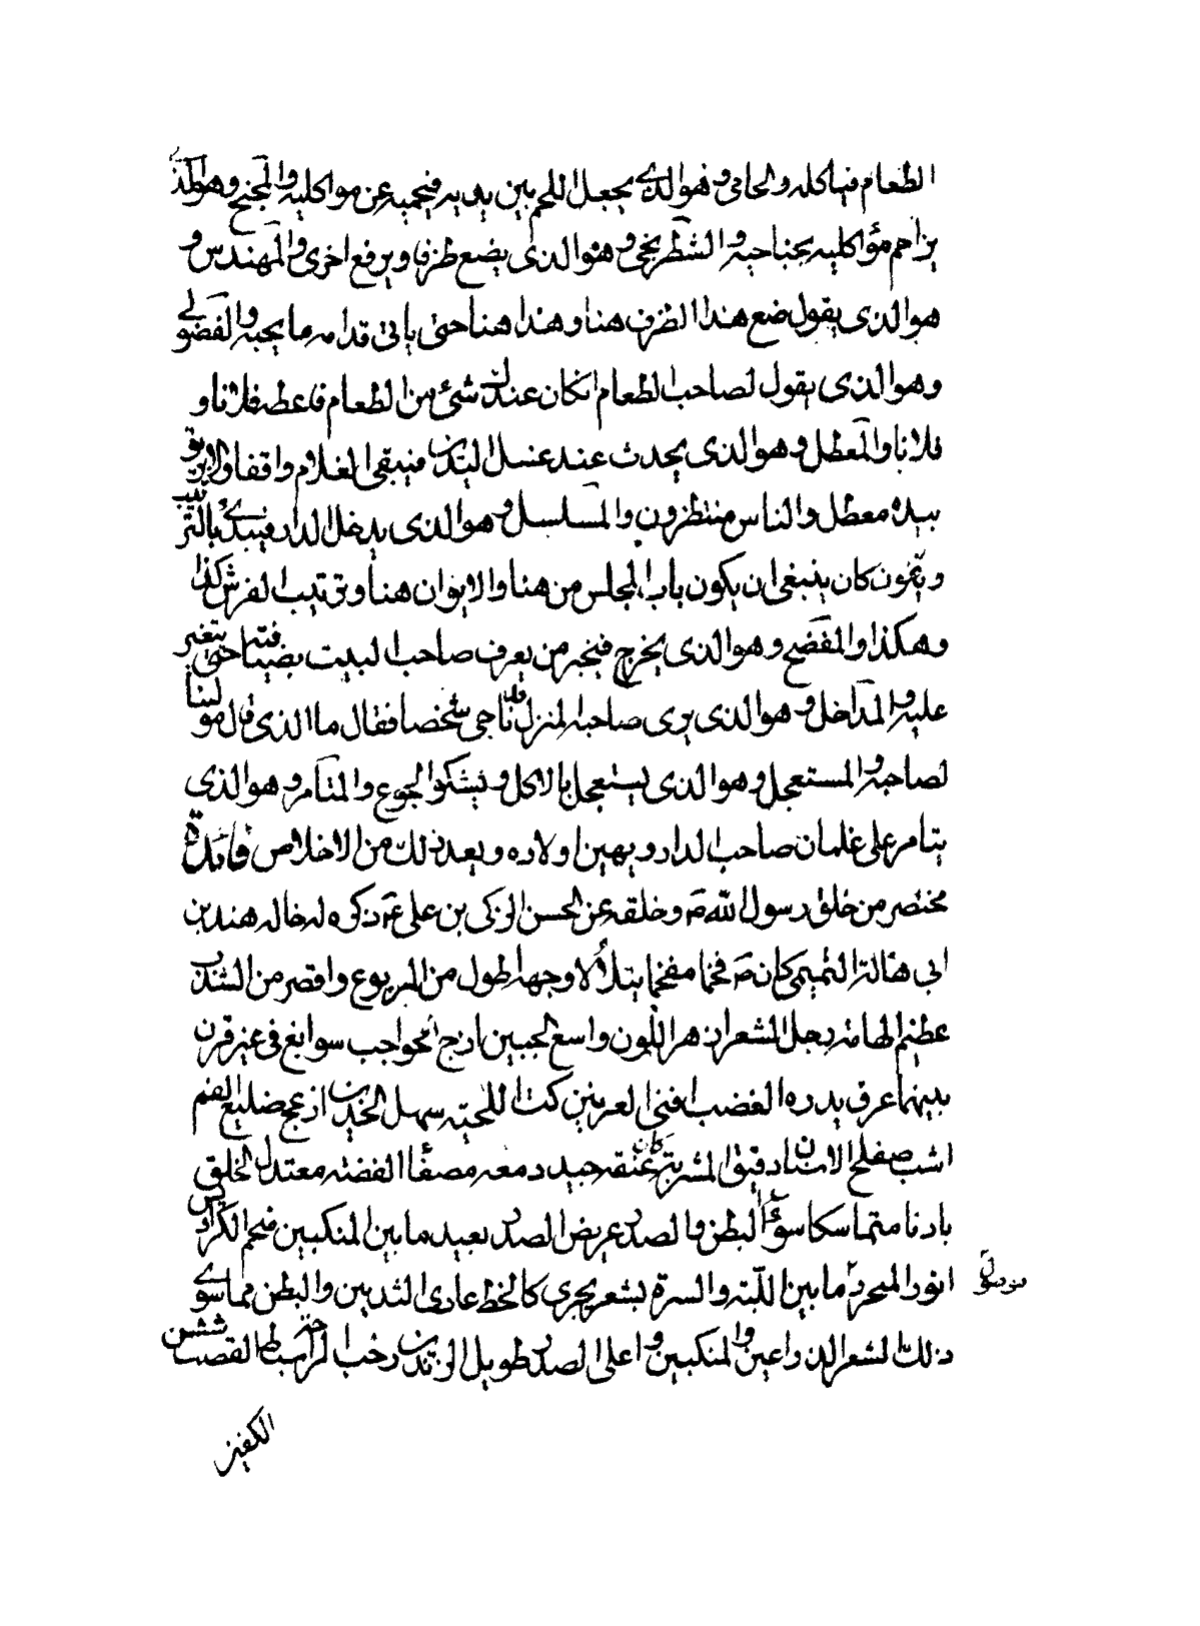 الطعام فياكله والحامي وهو الذي يجعل اللحم بين يديه فيحميه عن مواكليه والمجنح وهو الذي
يزاحم مؤاكليه بجناحيه والشطرنجي وهو الذي يضع ظرفا ويرفع اخرى والمهندس و
هو الذي يقول ضع هذا الظرف هنا وهذا هنا حتى ياتي قدامه ما يحبه والفضولي
وهو الذي يقول لصاحب الطعام انكان عندك شئ من الطعام فاعطه فلانا و
فلانا والمعطل وهو الذي يحدث عند غسل اليدين فيبقى الغلام واقفا والابريق
بيده معطل والناس منتظرون والمسلسل وهو الذي يدخل الدار فيبتدئ بالترتيب
ويقون كان ينبغي ان يكون باب المجلس من هنا والايوان هنا وترتيب الفرش كذا
وهكذا والمفضح وهو الذي يخرج فيخبر من يعرف صاحب البيت بضيافته حتى يتغير
عليه والمداخل وهو الذي يرى صاحب المنزل قد ناجى شخصا فقال ما الذي قال مولينا
لصاحبه والمستعجل وهو الذي يستعجل بالاكل ويشكوا الجوع والمتآمر وهو الذي
يتامر على غلمان صاحب الدار ويهين اولاده ويعد ذلك من الاخلاص فائدة
مختصر من خلق رسول الله ص وخلقه عن الحسن الزكي بن علي ع ذكره له خاله هند بن
ابي هالة التميمي كان ص فخما مفخما يتلألأ وجهه اطول من المربوع واقصر من الشذب
عظيم الهامة رجل الشعر ازهر اللون واسع الجبين ازج الحواجب سوابغ في غير قرن
بينهما عرق يدره الغضب اقنى العرنين كث اللحية سهل الخدين ادعج ضليع الفم
اشب مفلج الاسنان دقيق المسربة كان عنقه جيد دمعه مصفا الفضة معتدل الخلق
بادنا متماسكا سواء البطن والصدر عريض الصدر بعيد ما بين المنكبين ضخم الكراديس
انور المتجرد ما بين اللبة والسرة بشعر يجري كالخط عاري الثديين والبطن مما سوى
موصول
ذلك اشعر الذراعين والمنكبين واعلى الصدر طويل الزندين رحب الراحة سبط القصب ششن
الكفين